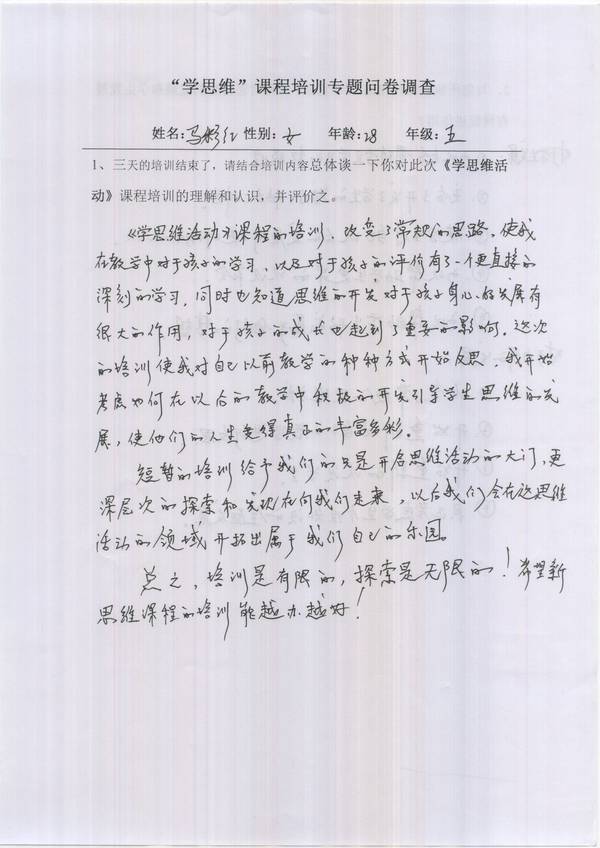 “学思维”课程培训专题问卷调查
姓名:马彩红 性别:女 年龄:28 年级:五
1、三天的培训结束了，请结合培训内容总体谈一下你对此次《学思维活
动》课程培训的理解和认识，并评价之。
《学思维活动》课程的培训，改变了常规的思路，使我
在教学中对于孩子的学习，以及对于孩子的评价有了一个更直接的
深刻的学习，同时也知道思维的开发对于孩子身心的发展有
很大的作用，对于孩子的成长也起到了重要的影响。这次
的培训使我对自己以前教学的种种方式开始反思，我开始
考虑如何在以后的教学中积极的开发引导学生思维的发
展，使他们的人生变得真正的丰富多彩。
短暂的培训给予我们的只是开启思维活动的大门，更
深层次的探索和发现在向我们走来，以后我们会在这思维
活动的领域开拓出属于我们自己的乐园。
总之，培训是有限的，探索是无限的！希望新
思维课程的培训能越办越好！